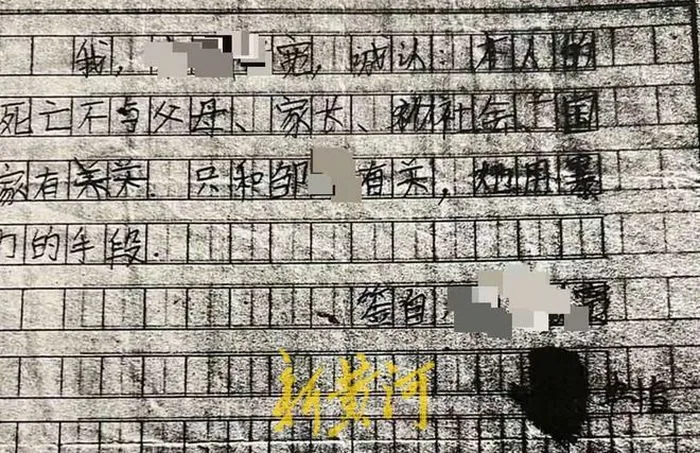 我, 宽, 诚认:本人的
死亡不与父母、家长、和社会、国
家有关. 只和邹 有关, 她用暴
力的手段.
签自
新黄河